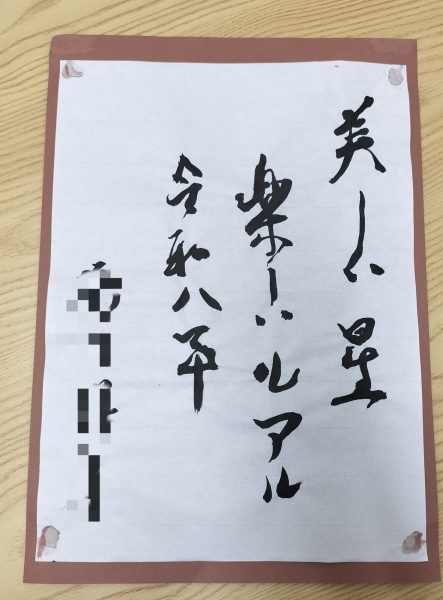 美しい星
楽しいルアル
令和八年